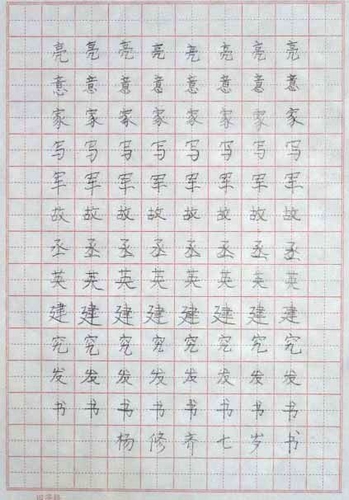 亮亮亮亮亮亮亮亮
意意意意意意意意
家家家家家家家家
写写写写写写写写
军军军军军军军军
故故故故故故故故
丞丞丞丞丞丞丞丞
英英英英英英英英
建建建建建建建建
究究究究究究究究
发发发发发发发发
书书书书书书书书
杨修齐七岁书